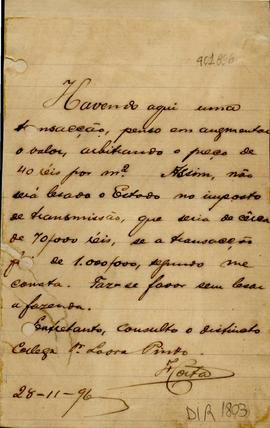 901896
Havendo aqui uma
transacção, penso em augmentar
o valor, arbitrando o preço de
40 réis por m². Assim, não
será lesado o Estado no imposto
de transmissão, que seria de cerca
de 70/000 réis, se a transacção
de 1.000/000, segundo me
consta. Faz-se favor sem lesar
a fazenda.
Entretanto, consulto o distincto
Collega Dr. Pinto.
28-11-96
DIR 1803